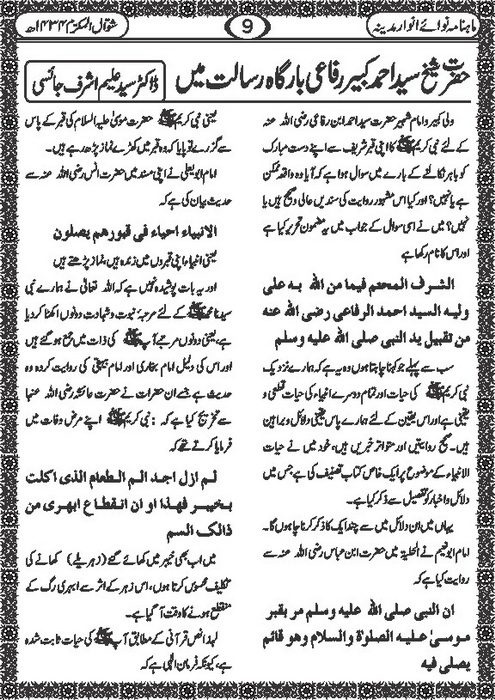 ماہنامہ نوائے انوار مدینہ
9
شوال المکرم ۱۴۳۴ھ
حضرت شیخ سید احمد کبیر رفاعی بارگاہ رسالت میں
ڈاکٹر سید علیم اشرف جائسی
ولی کبیر و امام شہیر حضرت سید احمد ابن رفاعی رضی اللہ عنہ
کے لئے نبی کریم ﷺ کا اپنی قبر شریف سے اپنے دست مبارک
کو باہر نکالنے کے بارے میں سوال ہوا ہے کہ آیا وہ واقعہ ممکن
ہے یا نہیں؟ اور کیا اس مشہور روایت کی سندیں عالی و صحیح ہیں یا
نہیں؟ میں نے اسی سوال کے جواب میں یہ مضمون تحریر کیا ہے
اور اس کا نام رکھا ہے
الشرف المحتم فیما من اللہ بہ علی
ولیہ السید احمد الرفاعی رضی اللہ عنہ
من تقبیل ید النبی صلی اللہ علیہ وسلم
سب سے پہلے جو کہنا چاہتا ہوں وہ یہ ہے کہ ہمارے نزدیک
نبی کریم ﷺ کی حیات اور تمام دوسرے انبیاء کی حیات قطعی و
یقینی ہے اور اس یقین کے لئے ہمارے پاس یقینی دلائل و براہین
ہیں۔ صحیح روایتیں اور متواتر خبریں ہیں، خود میں نے حیات
الانبیاء کے موضوع پر ایک خاص کتاب تصنیف کی ہے جس میں
دلائل و اخبار کو تفصیل سے ذکر کیا ہے۔
یہاں میں ان دلائل میں سے چند ایک کا ذکر کرنا چاہوں گا۔
امام ابو نعیم نے الحلیۃ میں حضرت ابن عباس رضی اللہ عنہ سے
روایت کیا ہے کہ
ان النبی صلی اللہ علیہ وسلم مر بقبر
موسیٰ علیہ الصلوٰۃ والسلام وهو قائم
یصلی فیہ
یعنی نبی کریم ﷺ حضرت موسیٰ علیہ السلام کی قبر کے پاس
سے گزرے تو پایا کہ وہ قبر میں کھڑے نماز پڑھ رہے ہیں۔
امام ابو یعلی نے اپنی مسند میں حضرت انس رضی اللہ عنہ سے
حدیث بیان کی ہے کہ
الانبیاء احیاء فی قبورهم یصلون
یعنی انبیاء اپنی قبروں میں زندہ ہیں، نماز پڑھتے ہیں
اور یہ بات پوشیدہ نہیں ہے کہ اللہ تعالیٰ نے ہمارے نبی
سیدنا محمد ﷺ کے لئے مرتبۂ نبوت و شہادت دونوں اکٹھا کر دیا
ہے، یعنی دونوں مرتبے آپ ﷺ کی ذات میں جمع ہو گئے ہیں
اور اس کی دلیل امام بخاری اور امام بیہقی کی روایت کردہ وہ
حدیث ہے جسے ان حضرات نے حضرت عائشہ رضی اللہ عنہا
سے تخریج کیا ہے کہ: نبی کریم ﷺ اپنے مرض وفات میں
فرمایا کرتے تھے کہ
لم ازل اجد الم الطعام الذی اکلت
بخیبر فهذا او ان انقطاع ابهری من
ذالک السم
میں اب بھی خیبر میں کھائے گئے (زہریلے) کھانے کی
تکلیف محسوس کرتا ہوں، اس زہر کے اثر سے ابہری رگ کے
منقطع ہونے کا وقت آ گیا ہے۔
لہٰذا نص قرآنی کے مطابق آپ ﷺ کی حیات ثابت شدہ
ہے، کیونکہ فرمان الٰہی ہے کہ